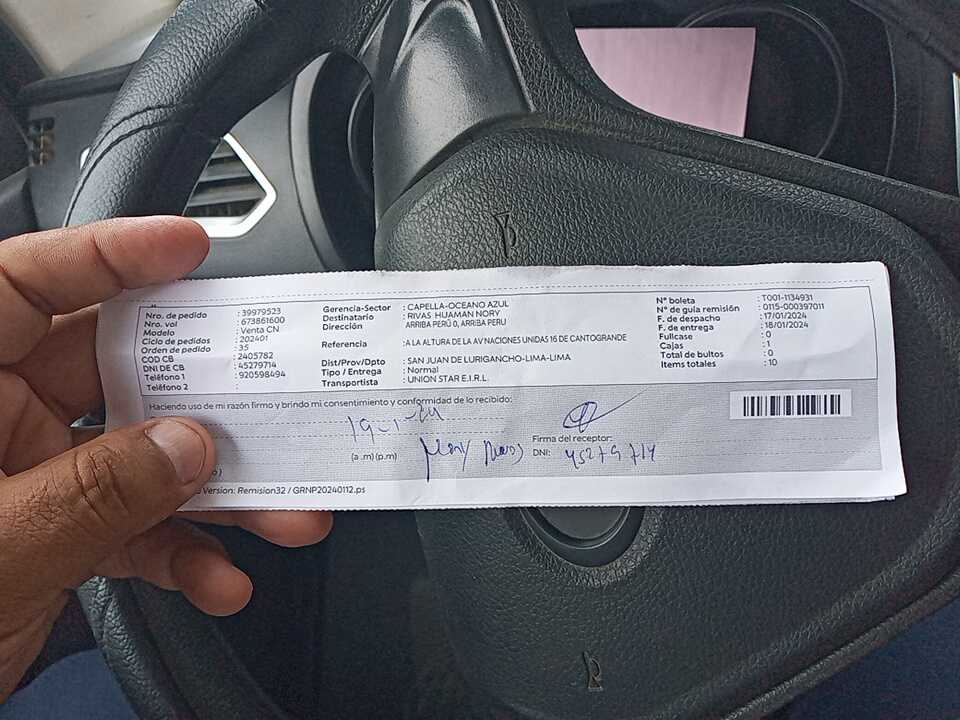 Nro. de pedido : 39979523
Nro. vol : 673861600
Modelo : Venta CN
Ciclo de pedidos : 202401
Orden de pedido : 35
COD CB : 2405782
DNI DE CB : 45279714
Teléfono 1 : 920598494
Teléfono 2 :
Gerencia-Sector : CAPELLA-OCEANO AZUL
Destinatario : RIVAS HUAMAN NORY
Dirección ARRIBA PERÚ 0, ARRIBA PERU
Referencia : A LA ALTURA DE LA AV NACIONES UNIDAS 16 DE CANTOGRANDE
Dist/Prov/Dpto : SAN JUAN DE LURIGANCHO-LIMA-LIMA
Tipo / Entrega : Normal
Transportista : UNION STAR E.I.R.L.
N° boleta : T001-1134931
N° de guía remisión : 0115-000397011
F. de despacho : 17/01/2024
F. de entrega : 18/01/2024
Fullcase : 0
Cajas : 1
Total de bultos : 0
Items totales : 10
Haciendo uso de mi razón firmo y brindo mi consentimiento y conformidad de lo recibido:
19-1-24
(a .m) (p.m) Nory Rivas
Firma del receptor:
DNI: 45279714
o )
Version: Remision32 / GRNP20240112.ps